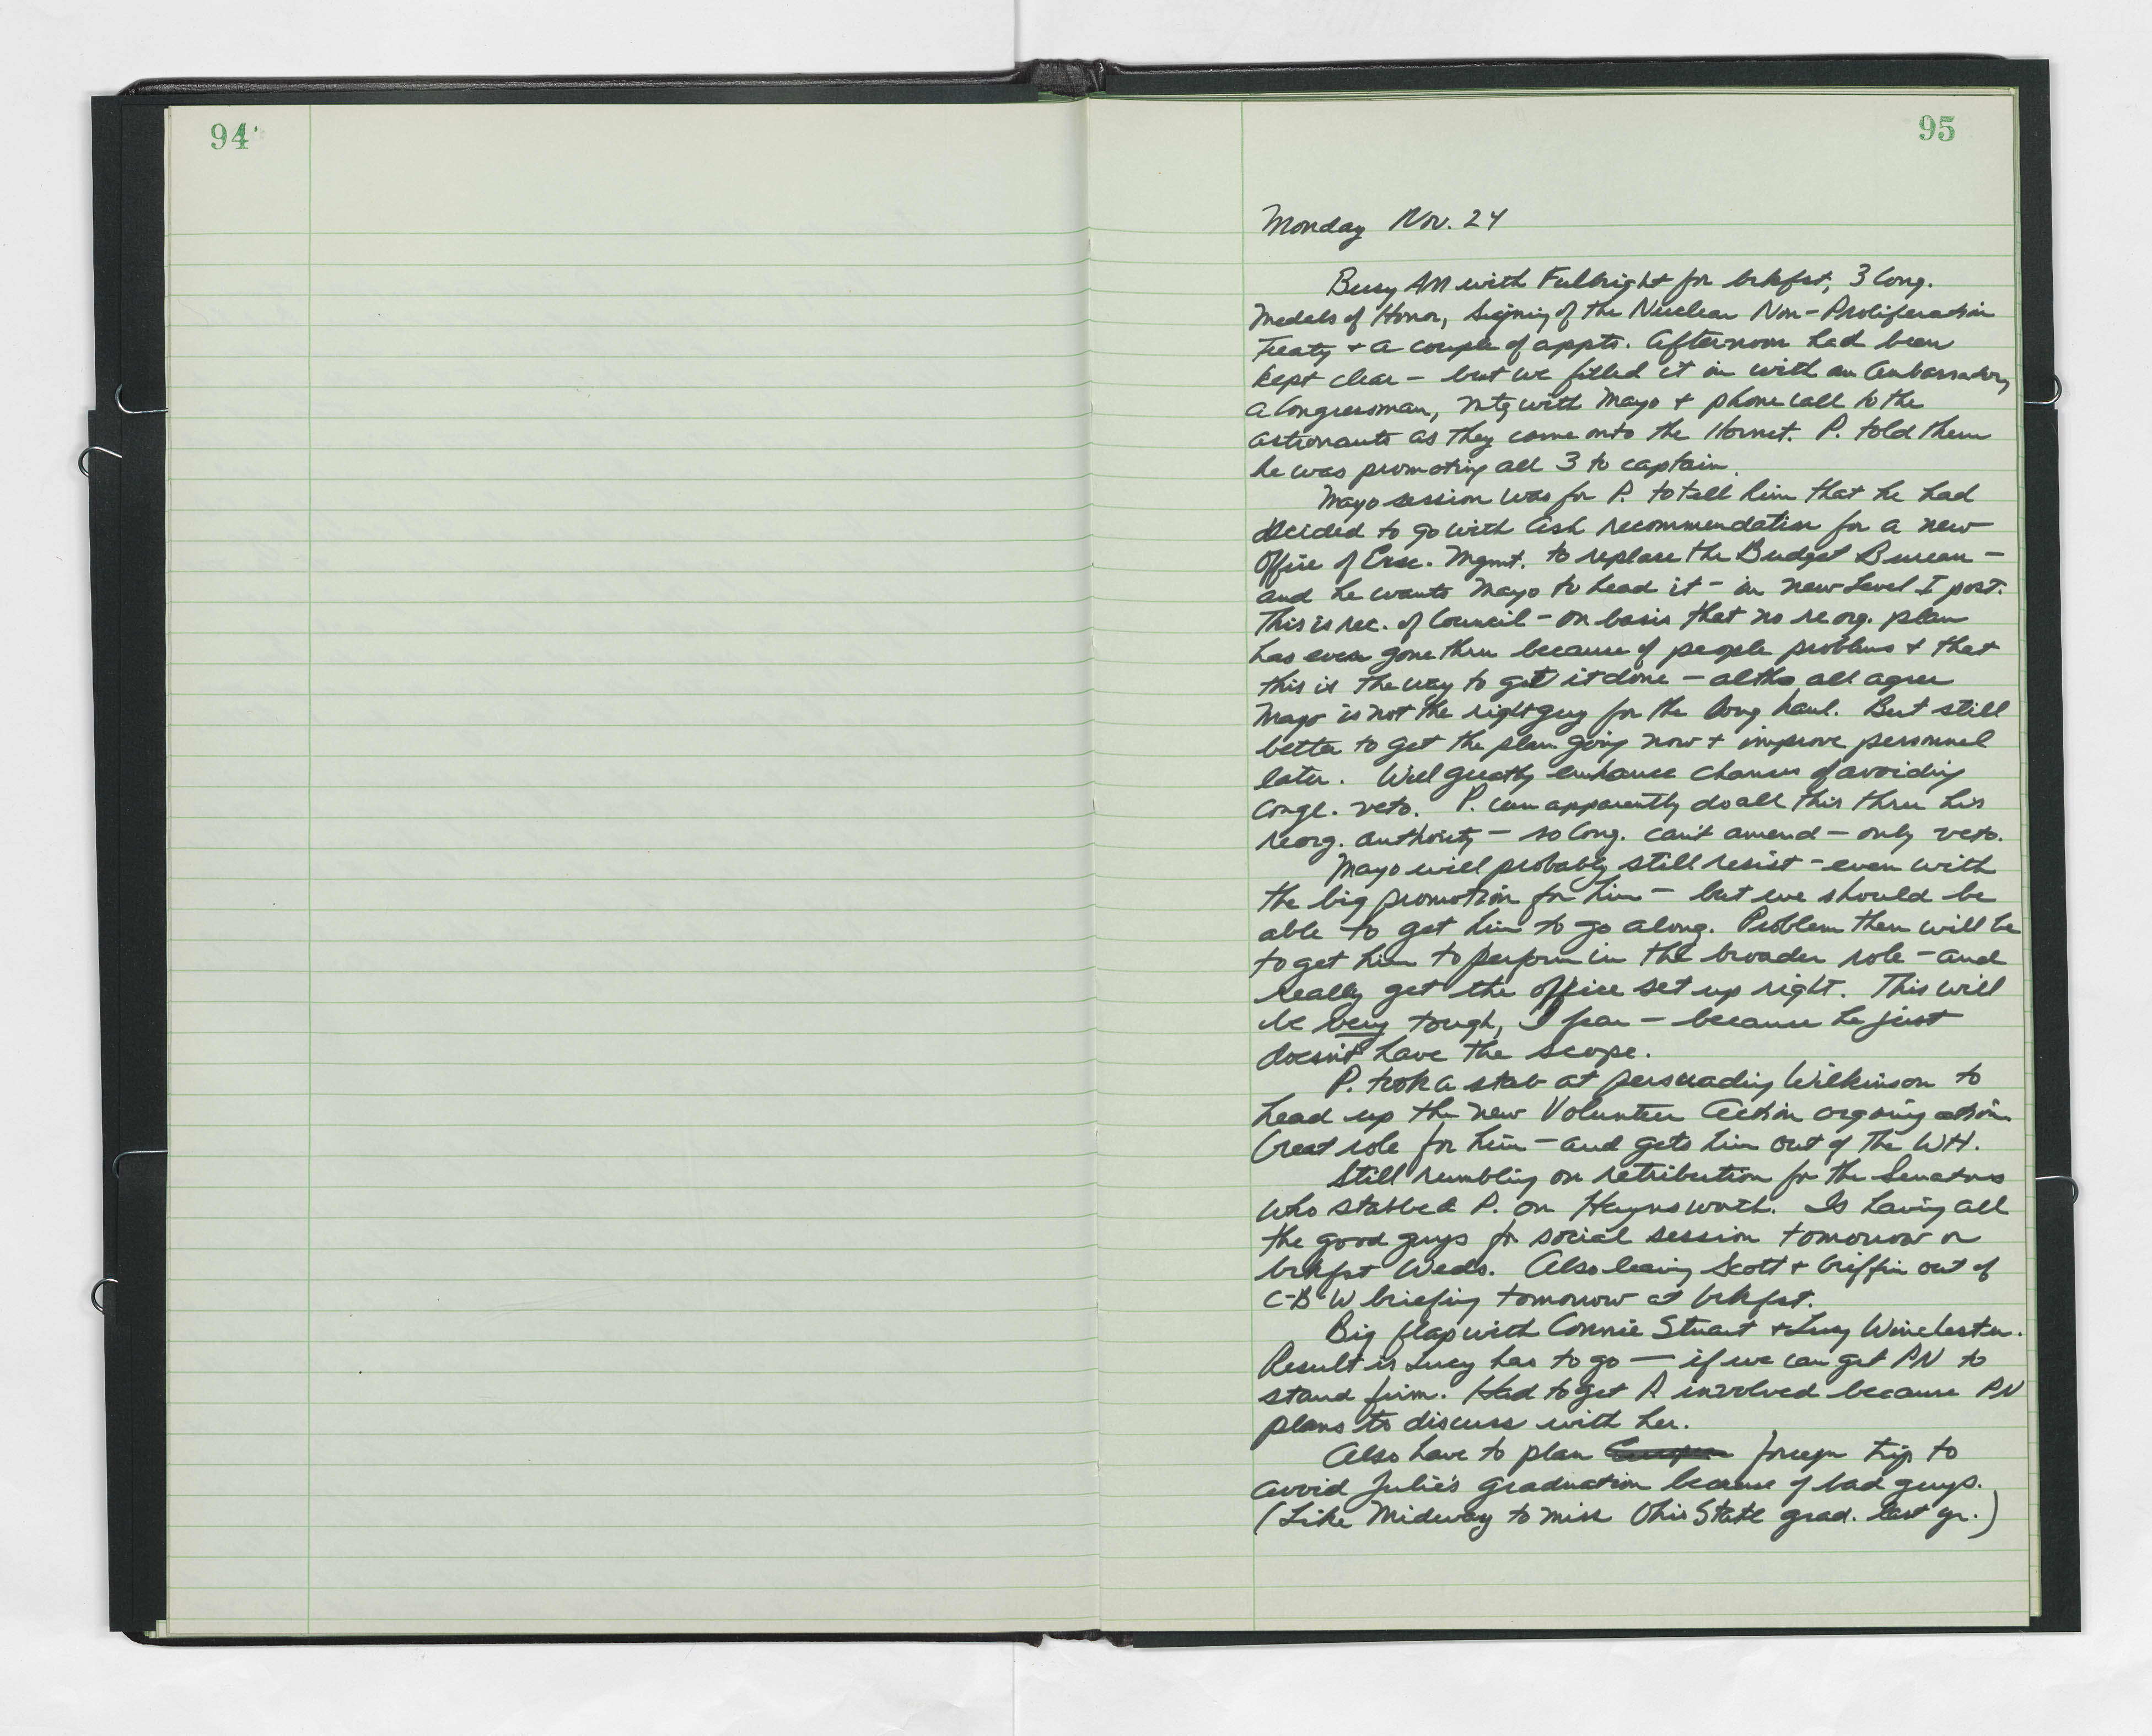 94
95
Monday Nov. 24
Busy AM with Fulbright for brkfst, 3 Cong.
Medals of Honor, signing of the Nuclear Non-Proliferation
Treaty + a couple of appts. Afternoon had been
kept clear - but we filled it in with an Ambassador,
a Congressman, mtg with Mayo + phone call to the
astronauts as they came onto the Hornet. P. told them
he was promoting all 3 to captain.
Mayo session was for P. to tell him that he had
decided to go with Ash recommendation for a new
Office of Exec. Mgmt. to replace the Budget Bureau -
and he wants Mayo to head it - in new Level I post.
This is rec. of Council - on basis that no reorg. plan
has ever gone thru because of people problems + that
this is the way to get it done - altho all agree
Mayo is not the right guy for the long haul. But still
better to get the plan going now + improve personnel
later. Will greatly enhance chances of avoiding
Congl. veto. P. can apparently do all this thru his
reorg. authority - so Cong. can't amend - only veto.
Mayo will probably still resist - even with
the big promotion for him - but we should be
able to get him to go along. Problem then will be
to get him to perform in the broader role - and
really get the office set up right. This will
be very tough, I fear - because he just
doesn't have the scope.
P. took a stab at persuading Wilkinson to
head up the new Volunteer Action organization.
Great role for him - and gets him out of the WH.
Still rumbling on retribution for the Senators
who stabbed P. on Haynsworth. Is having all
the good guys for social session tomorrow or
brkfst Weds. Also leaving Scott + Griffin out of
C-B-W briefing tomorrow at brkfst.
Big flap with Connie Stuart + Lucy Winchester.
Result is Lucy has to go — if we can get PN to
stand firm. Had to get P. involved because PN
plans to discuss with her.
Also have to plan foreign trip to
avoid Julie's graduation because of bad guys.
(Like Midway to miss Ohio State grad. last yr.)